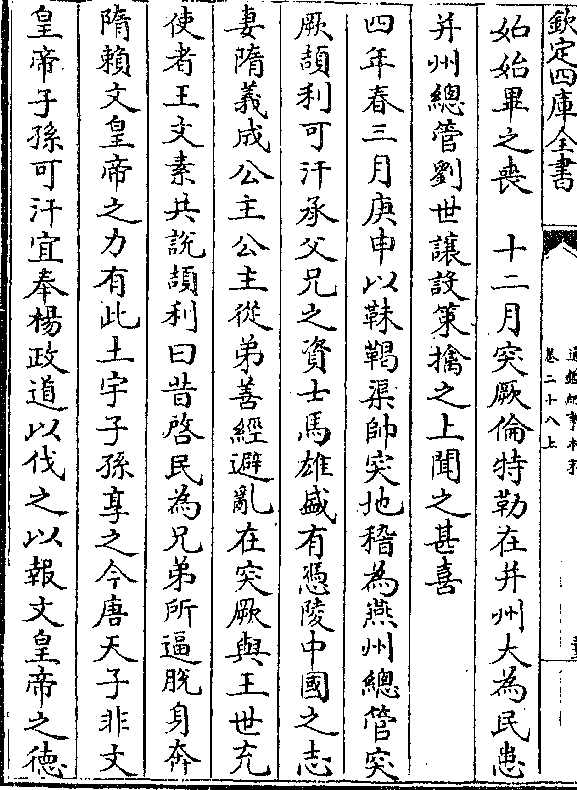 欽定四庫全書
通鑑紀事本末
卷二十八上
如始畢之喪　十二月突厥倫特勒在并州大為民患
并州總管劉世讓設策擒之上聞之甚喜
四年春三月庚申以靺鞨渠帥突地稽為燕州總管突
厥頡利可汗承父兄之資士馬雄盛有憑陵中國之志
妻隋義成公主公主從弟善經避亂在突厥與王世充
使者王文素共說頡利曰昔啓民為兄弟所逼脫身奔
隋賴文皇帝之力有此土宇子孫享之今唐天子非文
皇帝子孫可汗宜奉楊政道以伐之以報文皇帝之德